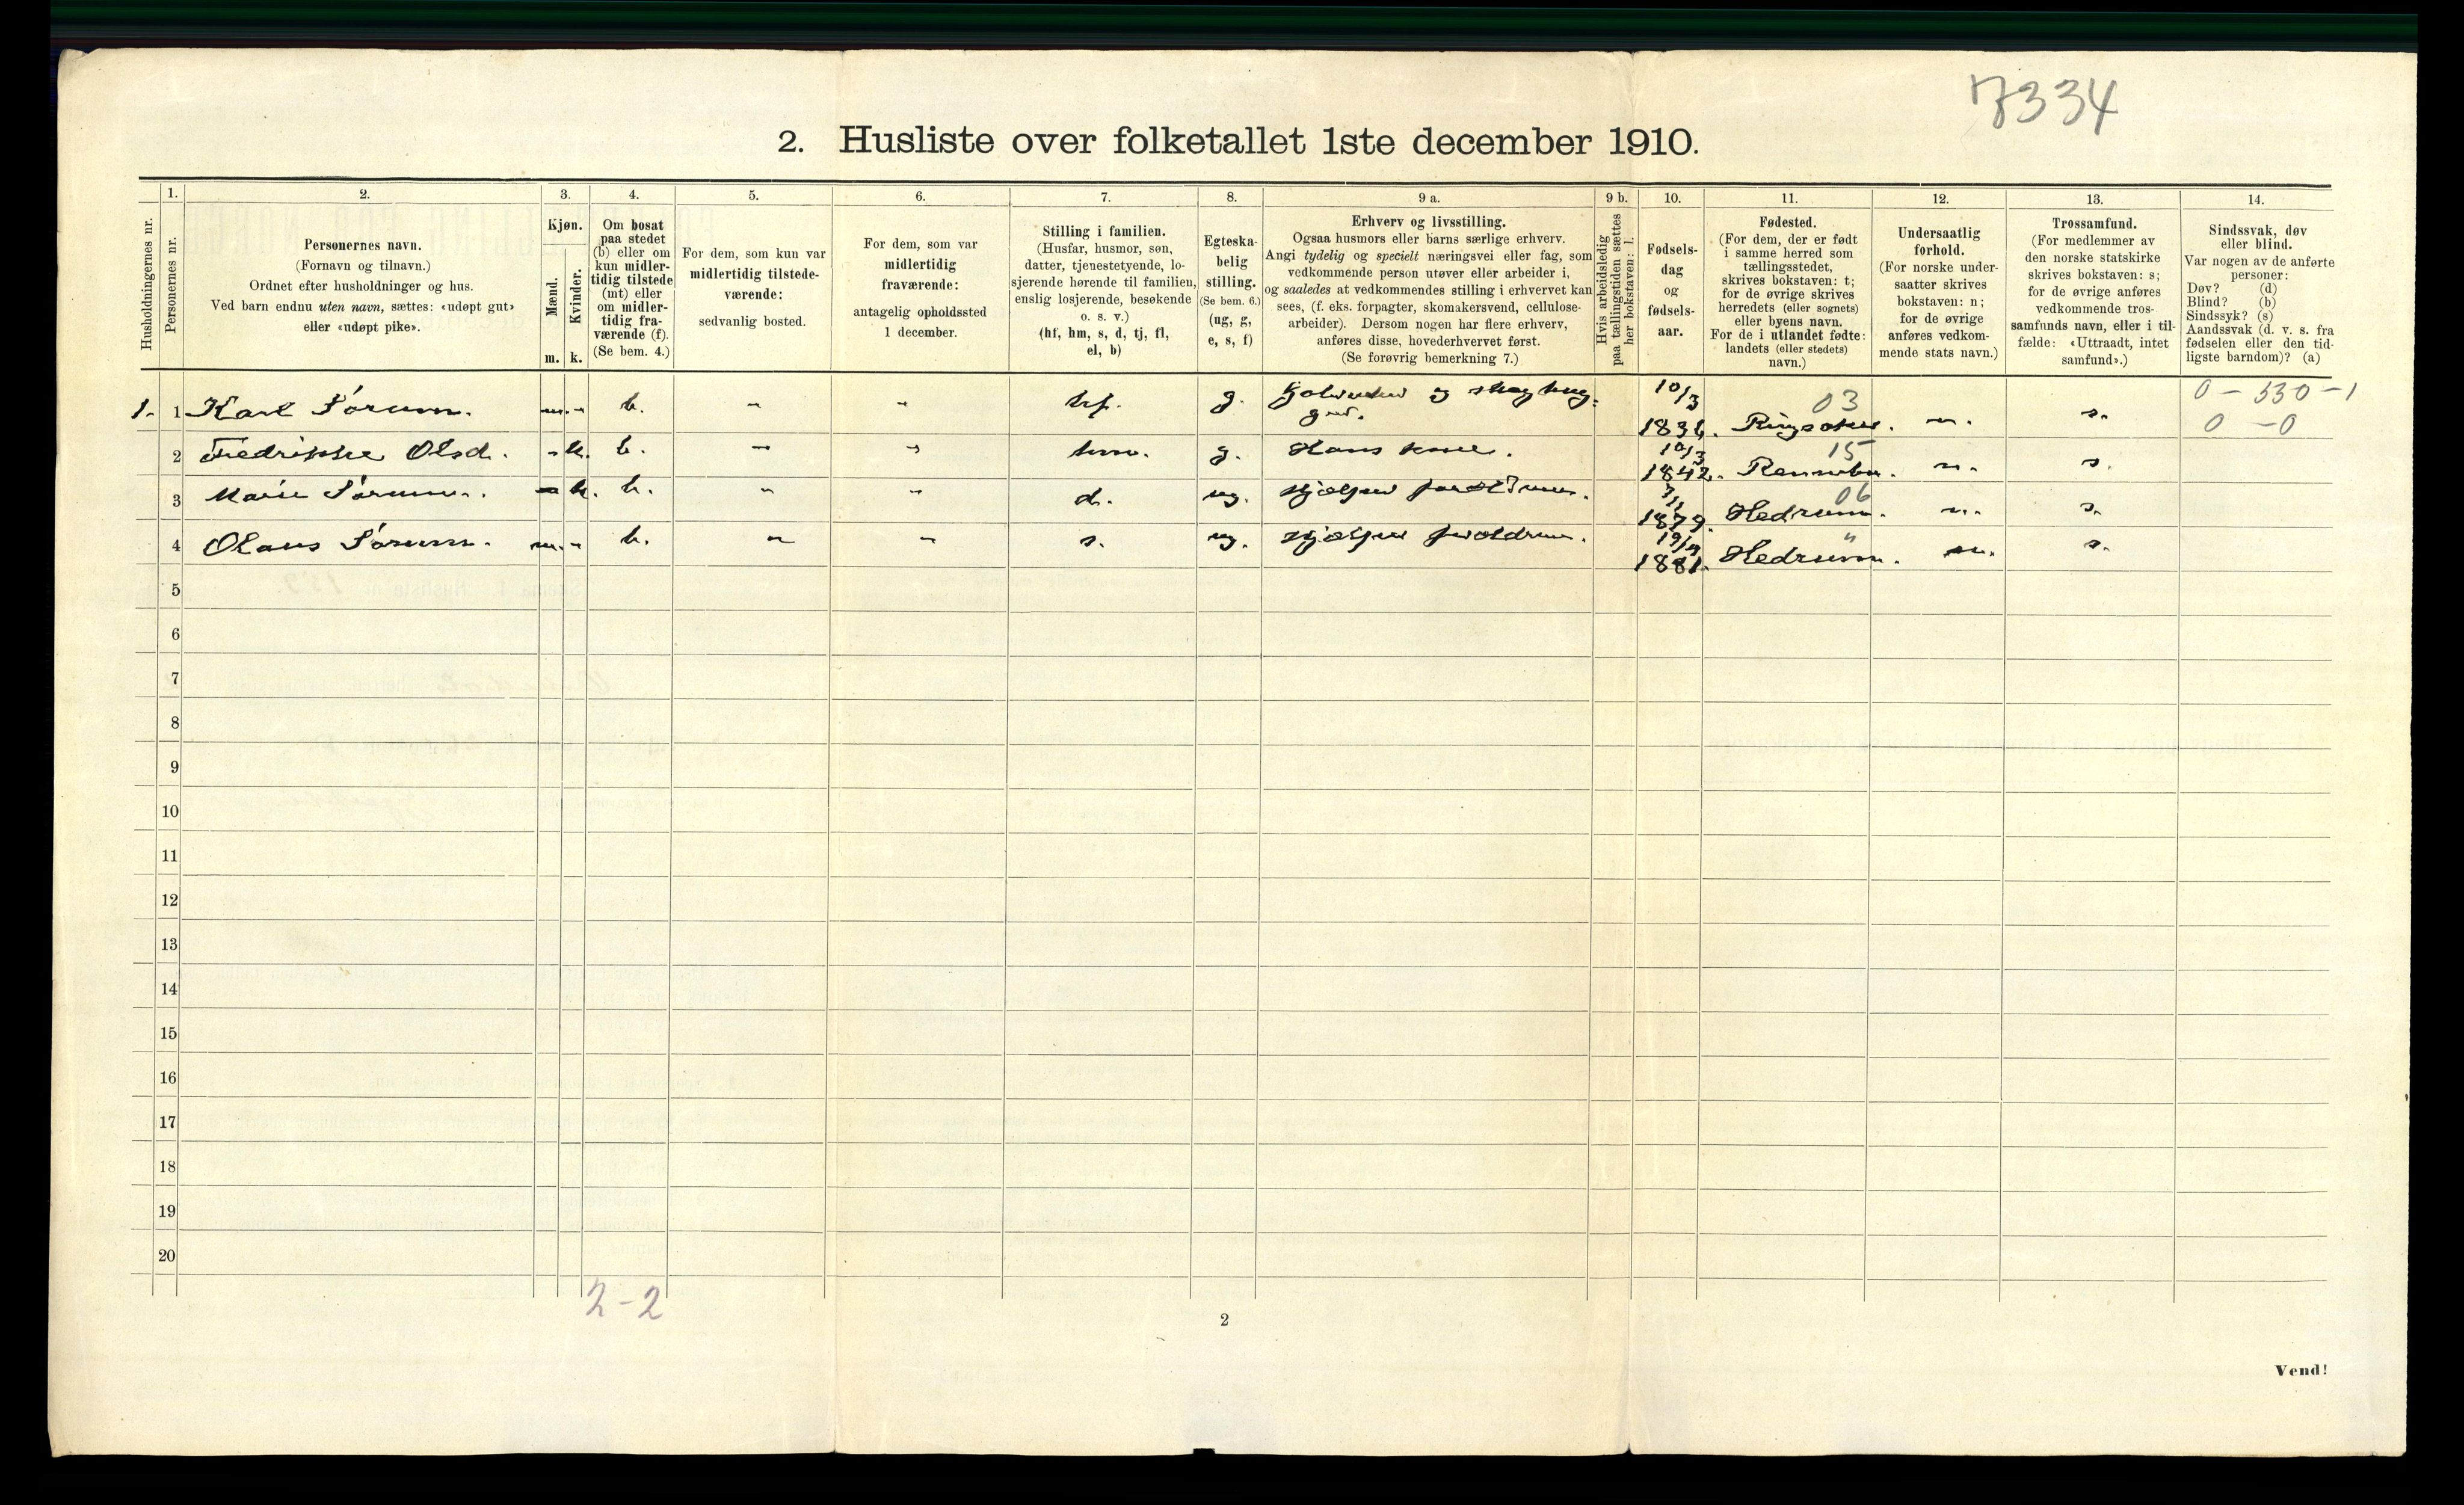 7334
2. Husliste over folketallet 1ste december 1910.
Husholdningernes nr.
1.
Personernes nr.
2.
Personernes navn.
(Fornavn og tilnavn.)
Ordnet efter husholdninger og hus.
Ved barn endnu uten navn, sættes: «udøpt gut»
eller «udøpt pike».
3.
Kjøn.
Mænd.
Kvinder.
m. k.
4.
Om bosat
paa stedet
(b) eller om
kun midler-
tidig tilstede
(mt) eller
om midler-
tidig fra-
værende (f).
(Se bem. 4.)
5.
For dem, som kun var
midlertidig tilstede-
værende:
sedvanlig bosted.
6.
For dem, som var
midlertidig
fraværende:
antagelig opholdssted
1 december.
7.
Stilling i familien.
(Husfar, husmor, søn,
datter, tjenestetyende, lo-
sjerende hørende til familien,
enslig losjerende, besøkende
o. s. v.)
(hf, hm, s, d, tj, fl,
el, b)
8.
Egteska-
belig
stilling.
(Se bem. 6.)
(ug, g,
e, s, f)
9 a.
Erhverv og livsstilling.
Ogsaa husmors eller barns særlige erhverv.
Angi tydelig og specielt næringsvei eller fag, som
vedkommende person utøver eller arbeider i,
og saaledes at vedkommendes stilling i erhvervet kan
sees, (f. eks. forpagter, skomakersvend, cellulose-
arbeider). Dersom nogen har flere erhverv,
anføres disse, hovederhvervet først.
(Se forøvrig bemerkning 7.)
9 b.
Hvis arbeidsledig
paa tællingstiden sættes
her bokstaven: l.
10.
Fødsels-
dag
og
fødsels-
aar.
11.
Fødested.
(For dem, der er født
i samme herred som
tællingsstedet,
skrives bokstaven: t;
for de øvrige skrives
herredets (eller sognets)
eller byens navn.
For de i utlandet fødte:
landets (eller stedets)
navn.)
12.
Undersaatlig
forhold.
(For norske under-
saatter skrives
bokstaven: n;
for de øvrige
anføres vedkom-
mende stats navn.)
13.
Trossamfund.
(For medlemmer av
den norske statskirke
skrives bokstaven: s;
for de øvrige anføres
vedkommende tros-
samfunds navn, eller i til-
fælde: «Uttraadt, intet
samfund».)
14.
Sindssvak, døv
eller blind.
Var nogen av de anførte
personer:
Døv? (d)
Blind? (b)
Sindssyk? (s)
Aandssvak (d. v. s. fra
fødselen eller den tid-
ligste barndom)? (a)
1. 1 Karl Sørum. m. - b. - - hf. g. 10/3 03 Ringsaker. n. s. 0 - 330 - 1
0 - 0
2 Fredrikke Olsd. - k. b. - - hm. g. Hans kone. 10/3 1842. 15 Rennebu. n. s.
3 Marie Sørum. - k. b. - - d. ug. Hjælper forældrene. 1879. 06 Hedrum. n. s.
4 Olaus Sørum. m. - b. - - s. ug. Hjælper forældrene. 1881. " Hedrum. n. s.
5
6
7
8
9
10
11
12
13
14
15
16
17
18
19
20
2 - 2
2
Vend!